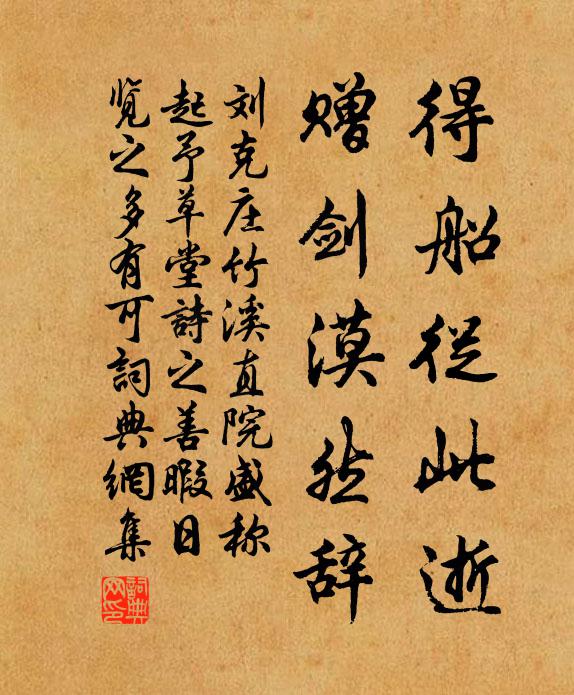 得船従此逝
赠剑漠然辞
刘克庄竹溪直院盛称
起予草堂詩之善暇日
览之多有可詞典網集